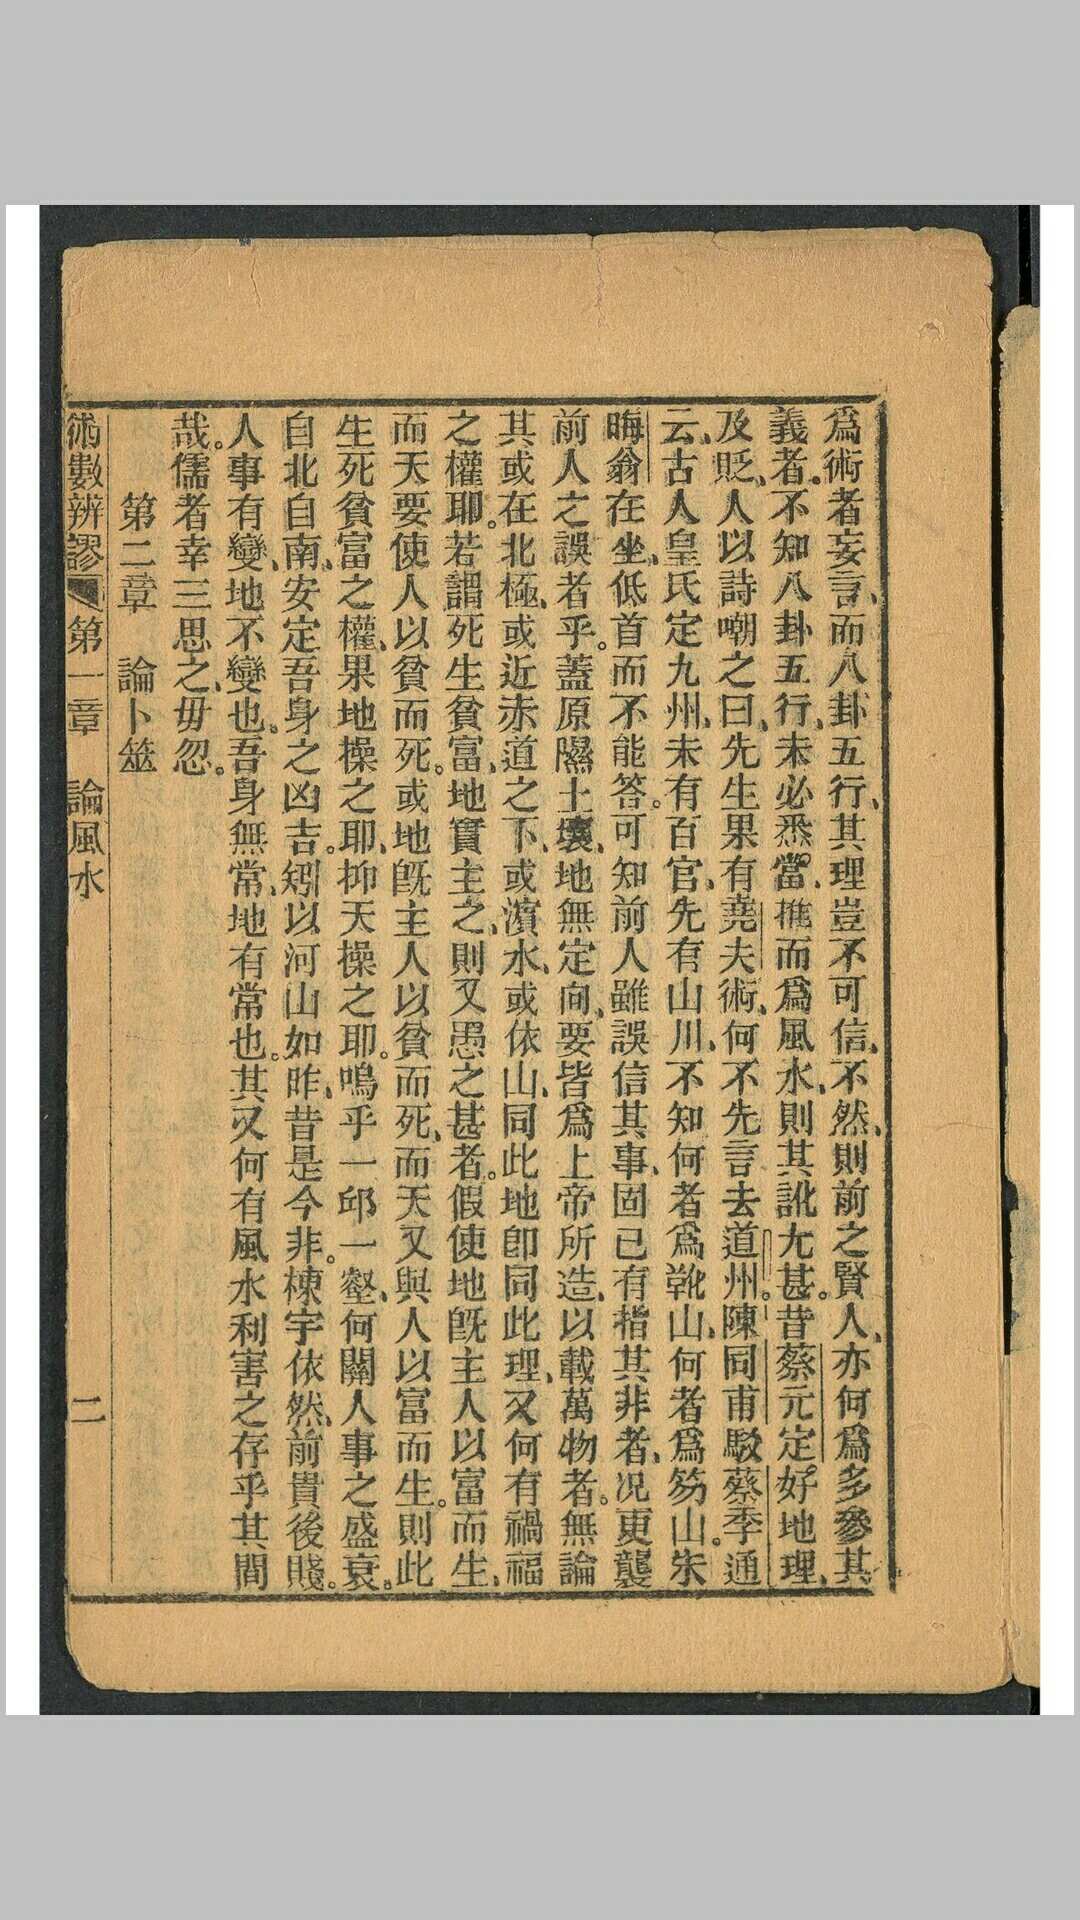 爲術者妄言、而八卦五行、其理豈不可信、不然、則前之賢人、亦何爲多參其
義者。不知八卦五行、未必悉當、推而爲風水、則其訛尤甚。昔蔡元定好地理、
及貶、人以詩嘲之曰、先生果有堯夫術、何不先言去道州。陳同甫駁蔡季通
云、古人皇氏定九州、未有百官、先有山川、不知何者爲靴山、何者爲笏山。朱
晦翁在坐、低首而不能答。可知前人雖誤信其事、固已有指其非者、况更襲
前人之誤者乎。蓋原隰土壤、地無定向、要皆爲上帝所造、以載萬物者。無論
其或在北極、或近赤道之下、或濱水、或依山、同此地卽同此理、又何有禍福
之權耶。若謂死生貧富、地實主之、則又愚之甚者。假使地旣主人以富而生、
而天要使人以貧而死。或地旣主人以貧而死、而天又與人以富而生。則此
生死貧富之權、果地操之耶、抑天操之耶。嗚乎一邱一壑、何關人事之盛衰。
自北自南、安定吾身之凶吉。矧以河山如昨、昔是今非。棟宇依然、前貴後賤。
人事有變、地不變也。吾身無常、地有常也。其又何有風水利害之存乎其間
哉。儒者幸三思之、毋忽。
第二章 論卜筮
術數辨謬 第一章 論風水 二